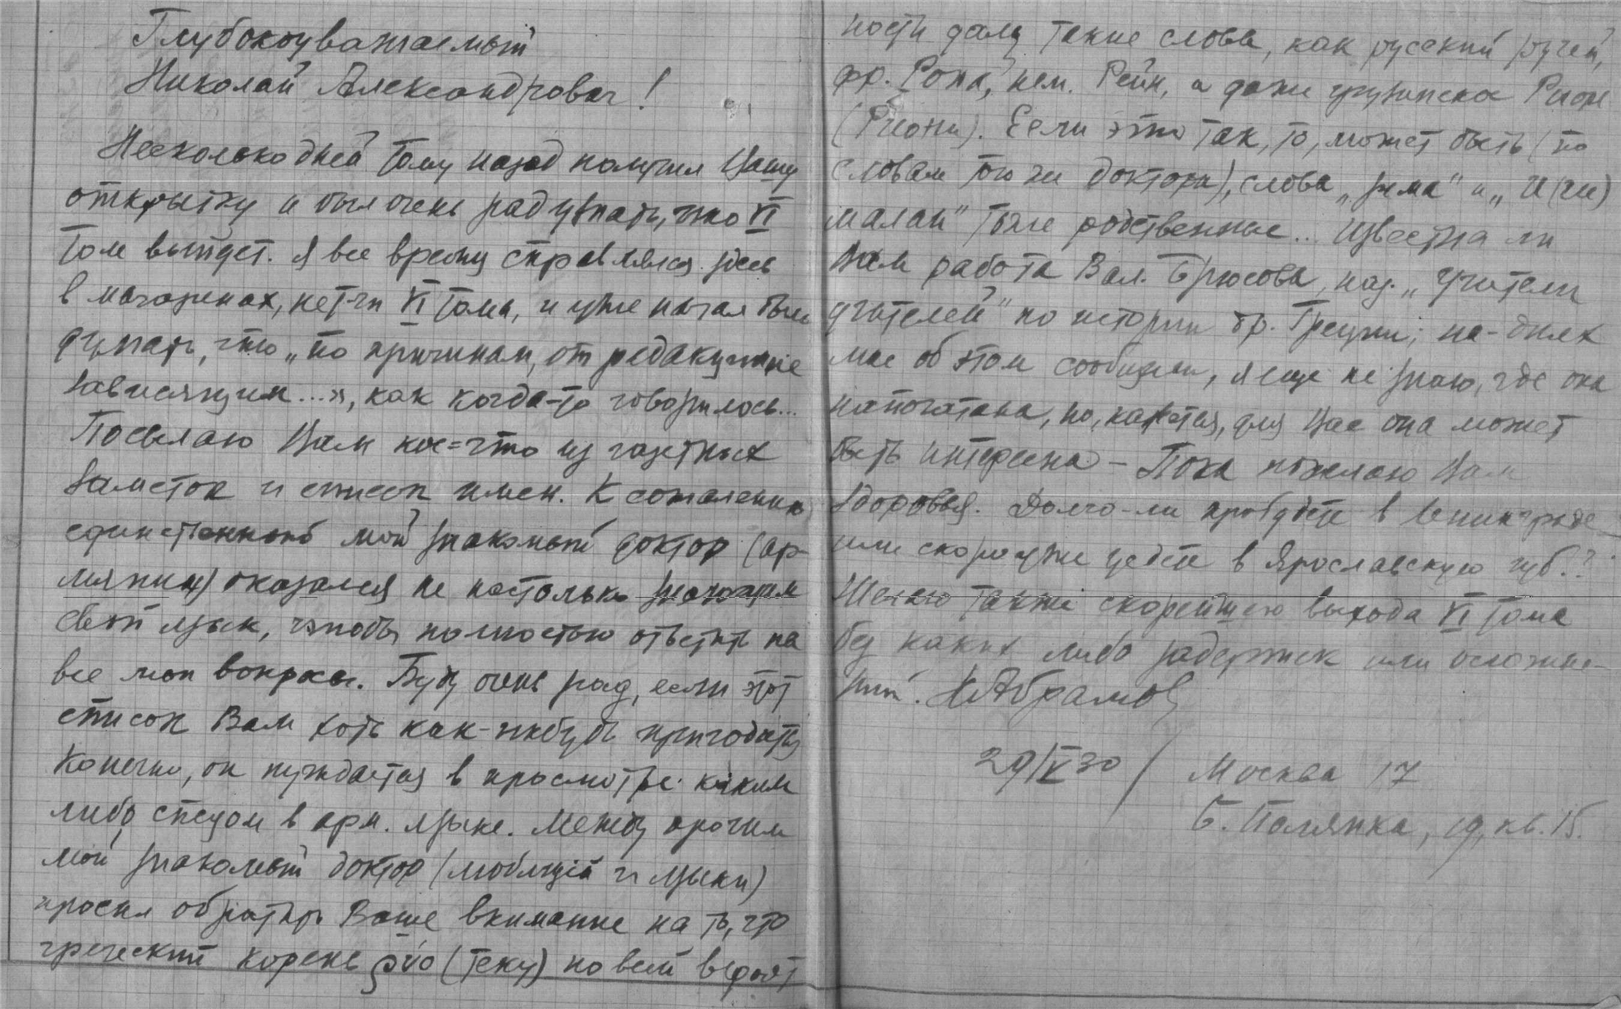 Глубокоуважаемый
Николай Александрович!
Несколько дней тому назад получил Вашу
открытку и был очень рад узнать, что VI
том выйдет. Я все время справлялся здесь
в магазинах, нет-ли VI тома, и уже начал было
думать, что „по причинам, от редакции не
зависящим...", как когда-то говорилось...
Посылаю Вам кое=что из газетных
заметок и список имен. К сожалению
единственный мой знакомый доктор (ар-
мянин) оказался не настолько знающим
свой язык, чтобы полностью ответить на
все мои вопросы. Буду очень рад, если этот
список Вам хоть как-нибудь пригодится
Конечно, он нуждается в просмотре каким
либо спецом в арм. языке. Между прочим
мой знакомый доктор (любящий и языки)
просил обратить Ваше внимание на то, что
греческий корень ῥέο (теку) по всей вероят
ности дал такие слова, как русский ручей,
фр. Рона, нем. Рейн, а даже грузинское Рион
(Риони). Если это так, то, может быть (по
словам того же доктора), слова „зима" и „Ги(хи)
малаи" тоже родственные... Известна ли
Вам работа Вал. Брюсова, наз. „Учители
учителей" по истории др. Греции; на-днях
мне об этом сообщили, я еще не знаю, где она
напечатана, но, кажется, для Вас она может
быть интересна – Пока пожелаю Вам
здоровья. Долго-ли пробудете в Ленинграде
или скоро уже уедете в Ярославскую губ.?
Желаю также скорейшего выхода VI тома
без каких либо задержек или осложне-
ний. Н Абрамов
29/V 30 / Москва 17
Б. Полянка, 19, кв. 15.